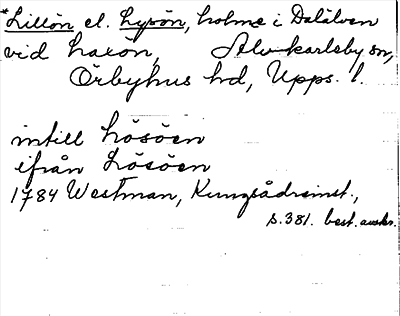 *Lillön el. Lysön, holme i Dalälven
vid Laxön, Älvkarleby sn,
Örbyhus hd, Upps. l.
intill Lösöen
ifrån Lösöen
1784 Westman, Kungsådreinst.,
s. 381. best. avskr.